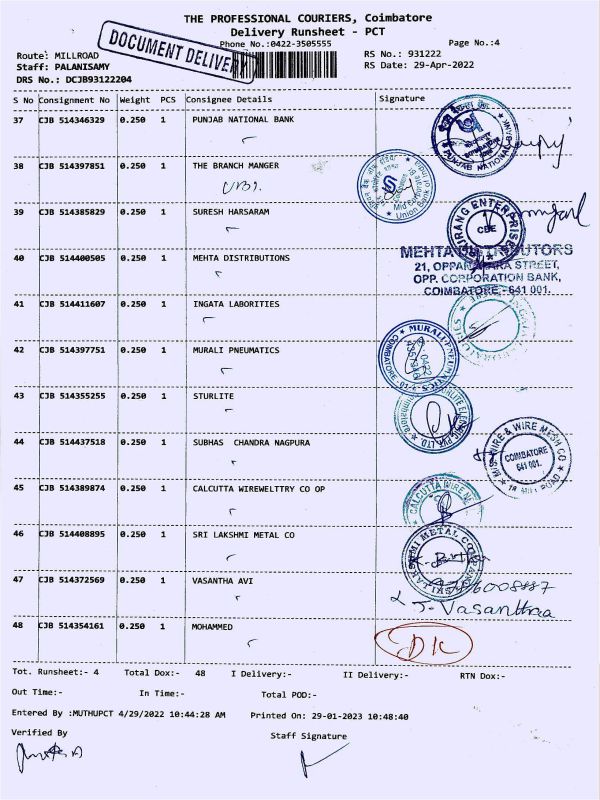 THE PROFESSIONAL COURIERS, Coimbatore
Delivery Runsheet - PCT
DOCUMENT DELIVERY
Phone No.:0422-3505555
Page No.:4
Route: MILLROAD
RS No.: 931222
Staff: PALANISAMY
RS Date: 29-Apr-2022
DRS No.: DCJB93122204
S No Consignment No Weight PCS Consignee Details Signature
37 CJB 514346329 0.250 1 PUNJAB NATIONAL BANK
PUNJAB NATIONAL BANK
38 CJB 514397851 0.250 1 THE BRANCH MANGER
UBI.
Union Bank of
39 CJB 514385829 0.250 1 SURESH HARSARAM
ENTERPRISES
CBE
40 CJB 514400505 0.250 1 MEHTA DISTRIBUTIONS
MEHTA DISTRIBUTORS
21, OPPANAKARA STREET,
OPP. CORPORATION BANK,
COIMBATORE - 641 001.
41 CJB 514411607 0.250 1 INGATA LABORITIES
42 CJB 514397751 0.250 1 MURALI PNEUMATICS
MURALI PNEUMATICS
COIMBATORE
0422
43 CJB 514355255 0.250 1 STURLITE
PVT. LTD.
44 CJB 514437518 0.250 1 SUBHAS CHANDRA NAGPURA
WIRE & WIRE MESH CO
COIMBATORE
641 001.
45 CJB 514389874 0.250 1 CALCUTTA WIREWELTTRY CO OP
CALCUTTA WIRE
46 CJB 514408895 0.250 1 SRI LAKSHMI METAL CO
LAKSHMI METAL
47 CJB 514372569 0.250 1 VASANTHA AVI
J. Vasanthaa
48 CJB 514354161 0.250 1 MOHAMMED
DK
Tot. Runsheet:- 4 Total Dox:- 48 I Delivery:- II Delivery:- RTN Dox:-
Out Time:- In Time:- Total POD:-
Entered By :MUTHUPCT 4/29/2022 10:44:28 AM Printed On: 29-01-2023 10:48:40
Verified By Staff Signature